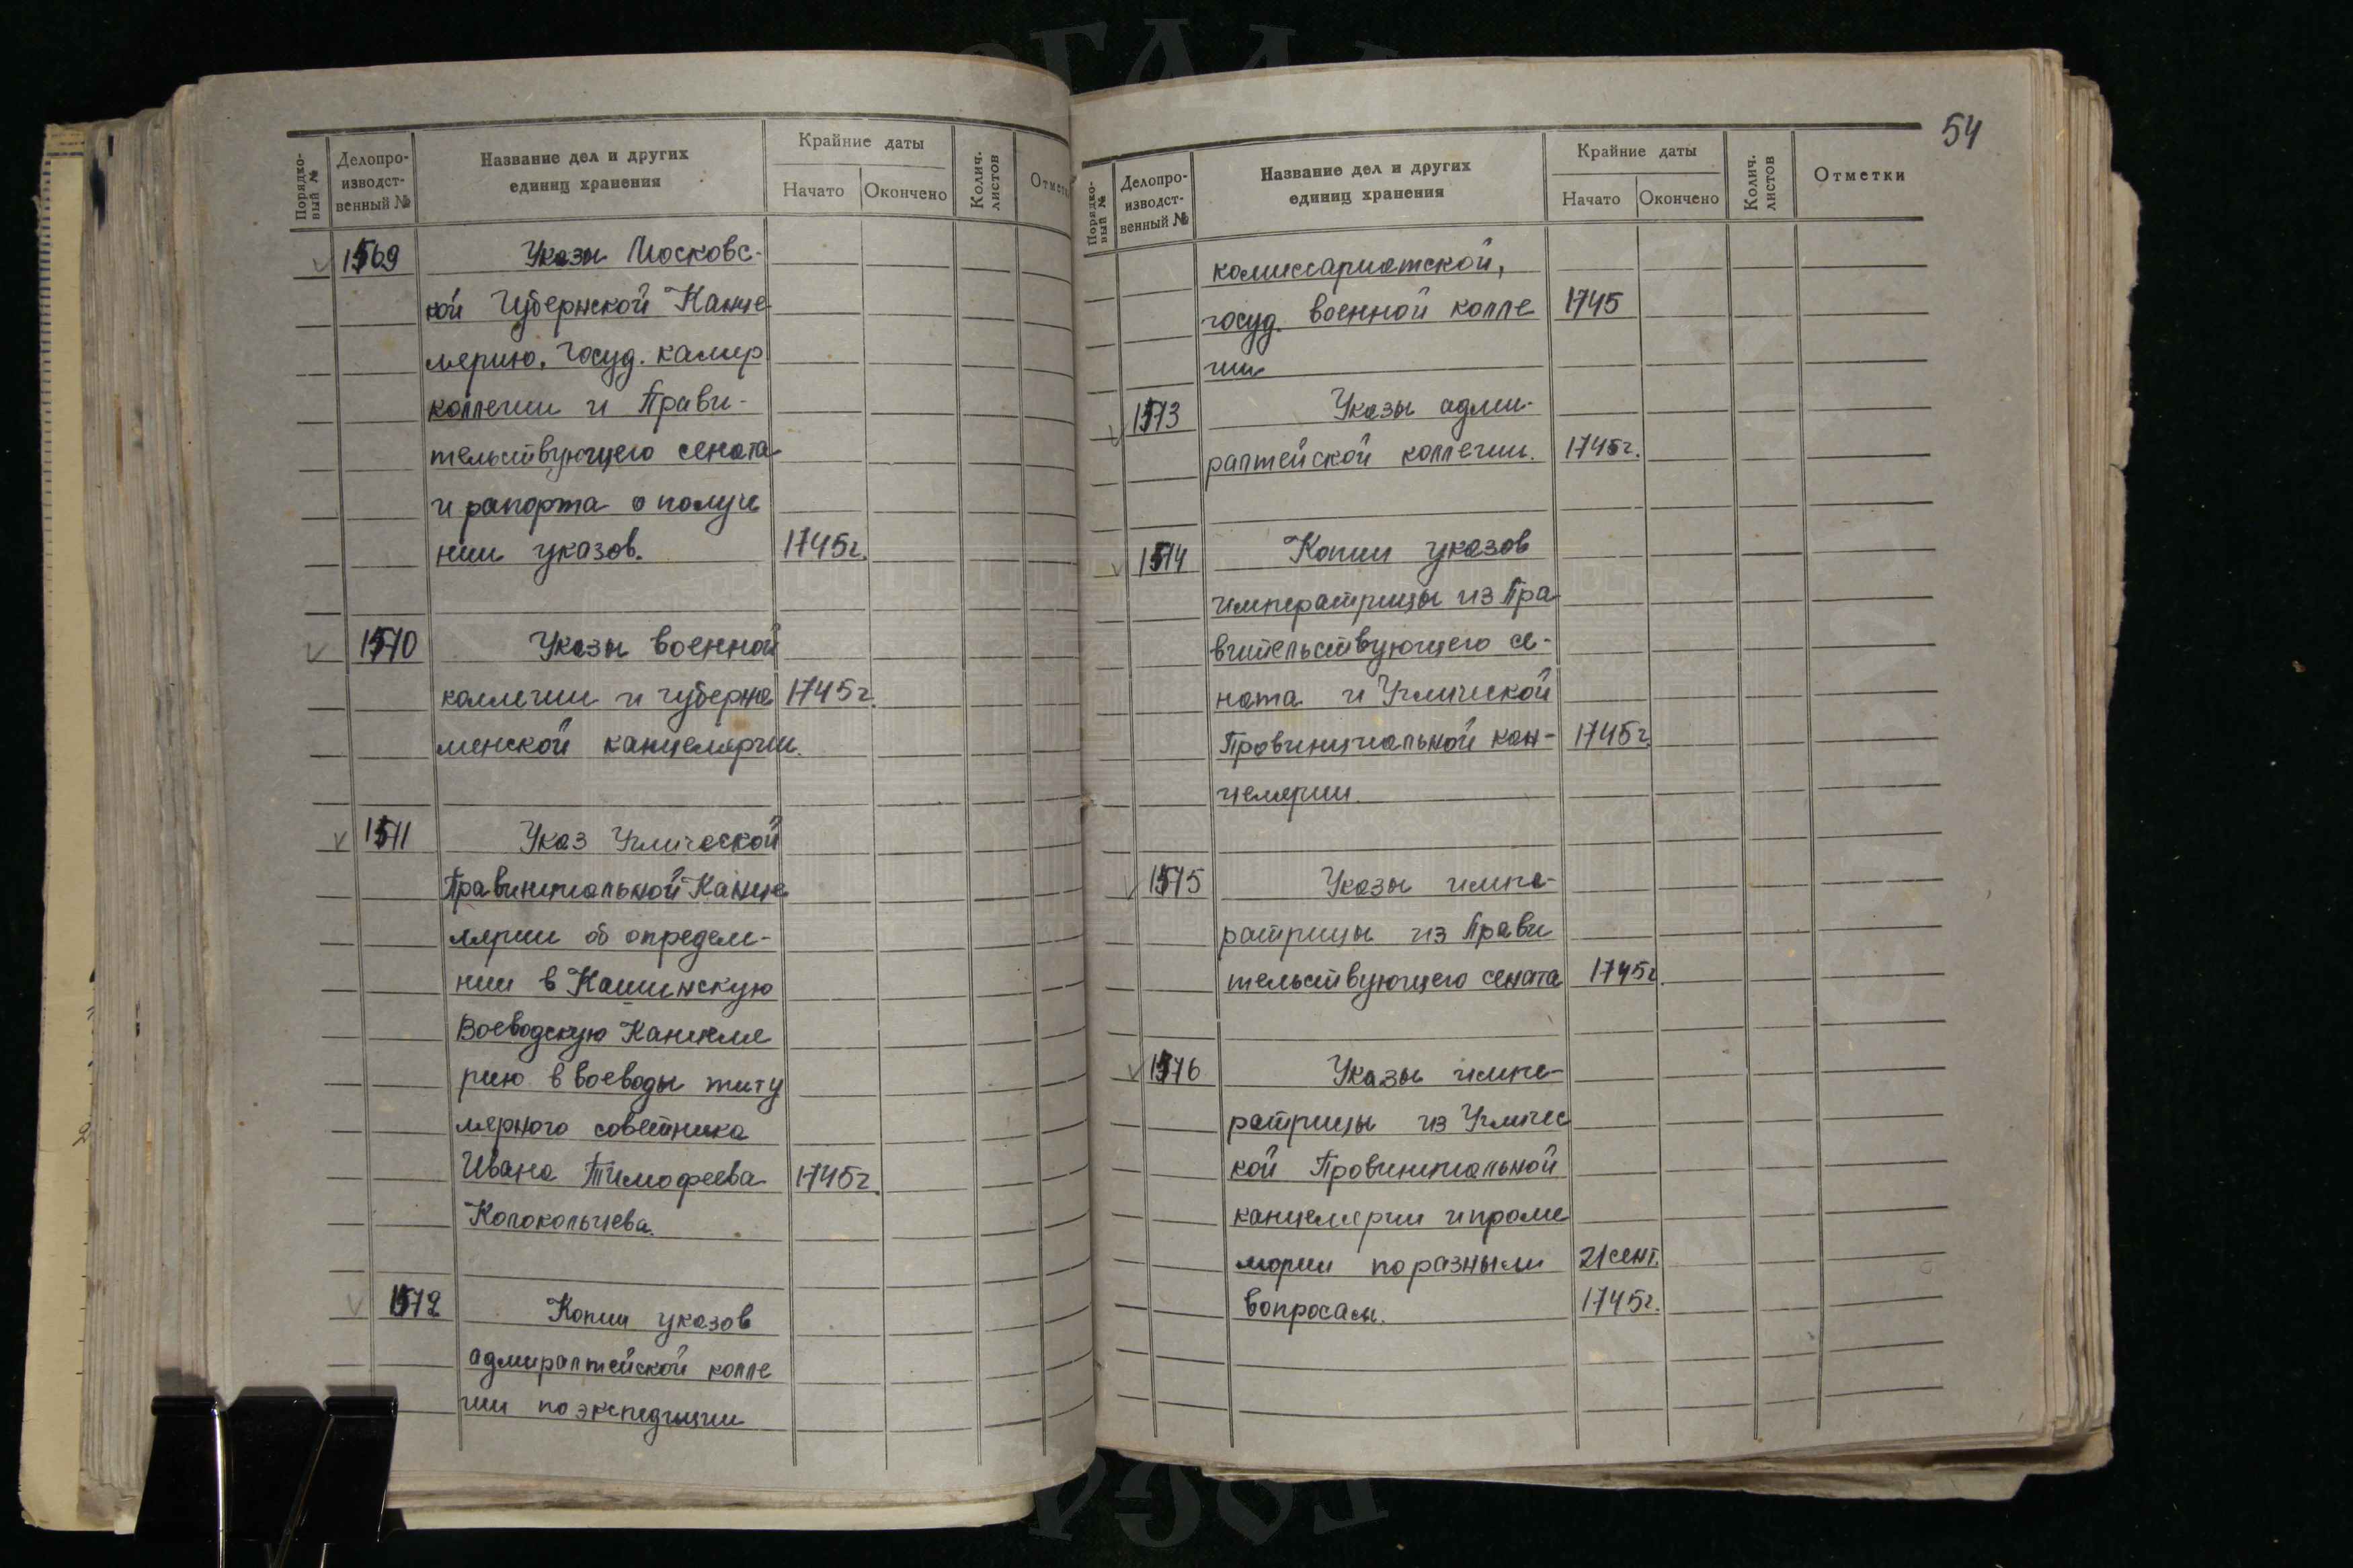 Порядко-
вый №
Делопро-
изводст-
венный №
Название дел и других
единиц хранения
Крайние даты
Начато
Окончено
Колич.
листов
Отметк
1569
Указы Московс-
кой Губернской Канце
лярию, Госуд. камер
коллегии и Прави-
тельствующего сената
и рапорта о получе
нии указов.
1745г.
1570
Указы военной
коллегии и губерна
менской канцелярии.
1745г.
1571
Указ Угличской
Правинциальной Канце
лярии об определе-
нии в Кашинскую
Воеводскую Канцеля
рию в воеводы титу
лярного советника
Ивана Тимофеева
1745г.
Колокольцева.
1572
Копии указов
адмиралтейской колле
гии по экспедиции
54
Порядко-
вый №
Делопро-
изводст-
венный №
Название дел и других
единиц хранения
Крайние даты
Начато
Окончено
Колич.
листов
Отметки
комиссариатской,
госуд. военной колле
1745
гии
1573
Указы адми-
ралтейской коллегии.
1745г.
1574
Копии указов
императрицы из Пра
вительствующего се-
ната и Угличской
Провинциальной кан-
1745г.
целярии.
1575
Указы импе-
ратрицы из Прави
тельствующего сената
1745г.
1576
Указы импе-
ратрицы из Угличес
кой Провинциальной
канцелярии и проме
мории по разным
21 сент.
вопросам.
1745г.